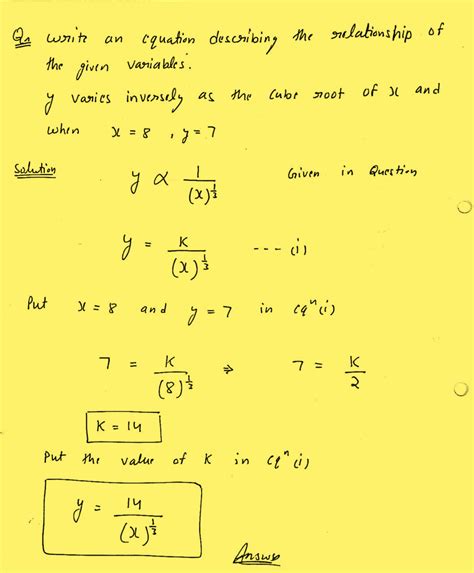 Qn write an equation describing the relationship of
the given variables.
y varies inversely as the cube root of x and
when x = 8 , y = 7
Solution y ∝ 1/(x)^⅓ Given in Question
y = K/(x)^⅓ --- (i)
Put x = 8 and y = 7 in eqⁿ (i)
7 = K/(8)^⅓ ⇒ 7 = K/2
K = 14
Put the value of K in eqⁿ (i)
y = 14/(x)^⅓
Answer